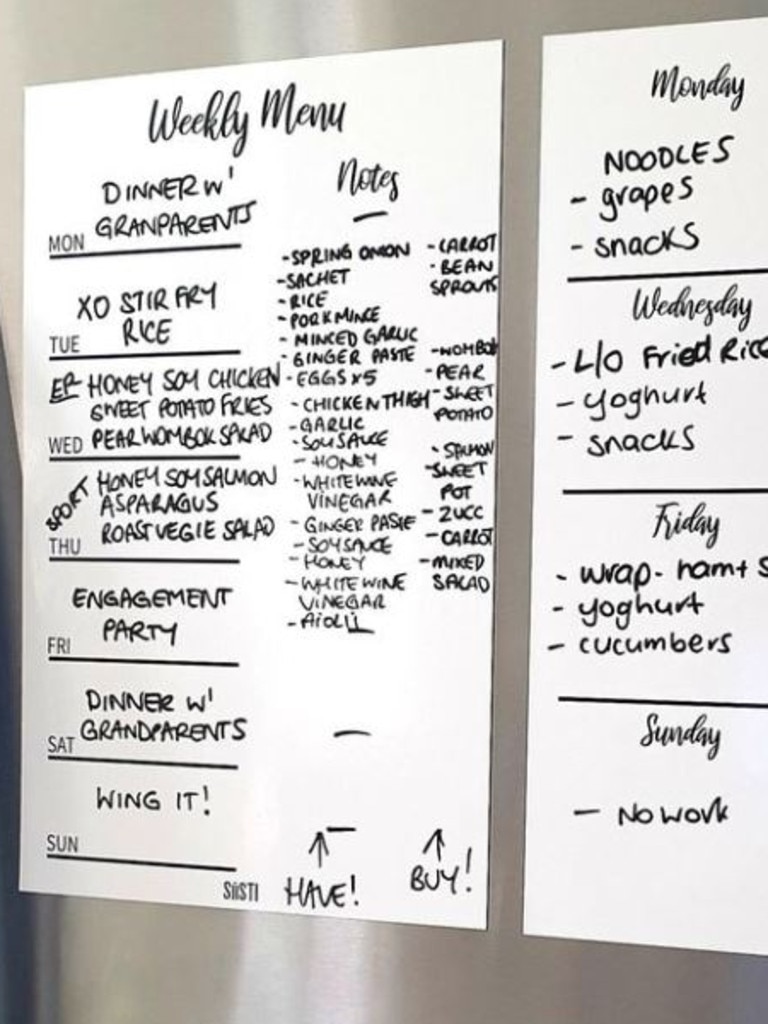 Weekly Menu
DINNER W'
GRANPARENTS
MON
XO STIR FRY
RICE
TUE
EP HONEY SOY CHICKEN
SWEET POTATO FRIES
WED PEAR WOMBOK SALAD
SPORT HONEY SOY SALMON
ASPARAGUS
ROAST VEGIE SALAD
THU
ENGAGEMENT
PARTY
FRI
DINNER W'
GRANDPARENTS
SAT
WING IT!
SUN
SiiSTI
Notes
-SPRING ONION
-SACHET
-RICE
-PORK MINCE
- MINCED GARLIC
- GINGER PASTE
-EGGS x5
- CHICKEN THIGH
-GARLIC
-SOY SAUCE
- HONEY
-WHITE WINE
VINEGAR
- GINGER PASTE
- SOY SAUCE
- HONEY
- WHITE WINE
VINEGAR
- AIOLI
HAVE!
- CARROT
- BEAN
SPROUTS
-WOMBOK
- PEAR
- SWEET
POTATO
- SALMON
- SWEET
POT
- ZUCC
- CARROT
- MIXED
SALAD
BUY!
Monday
NOODLES
- grapes
- snacks
Wednesday
- L/O Fried Rice
- yoghurt
- snacks
Friday
- wrap- ham+ S
- yoghurt
- cucumbers
Sunday
- No work